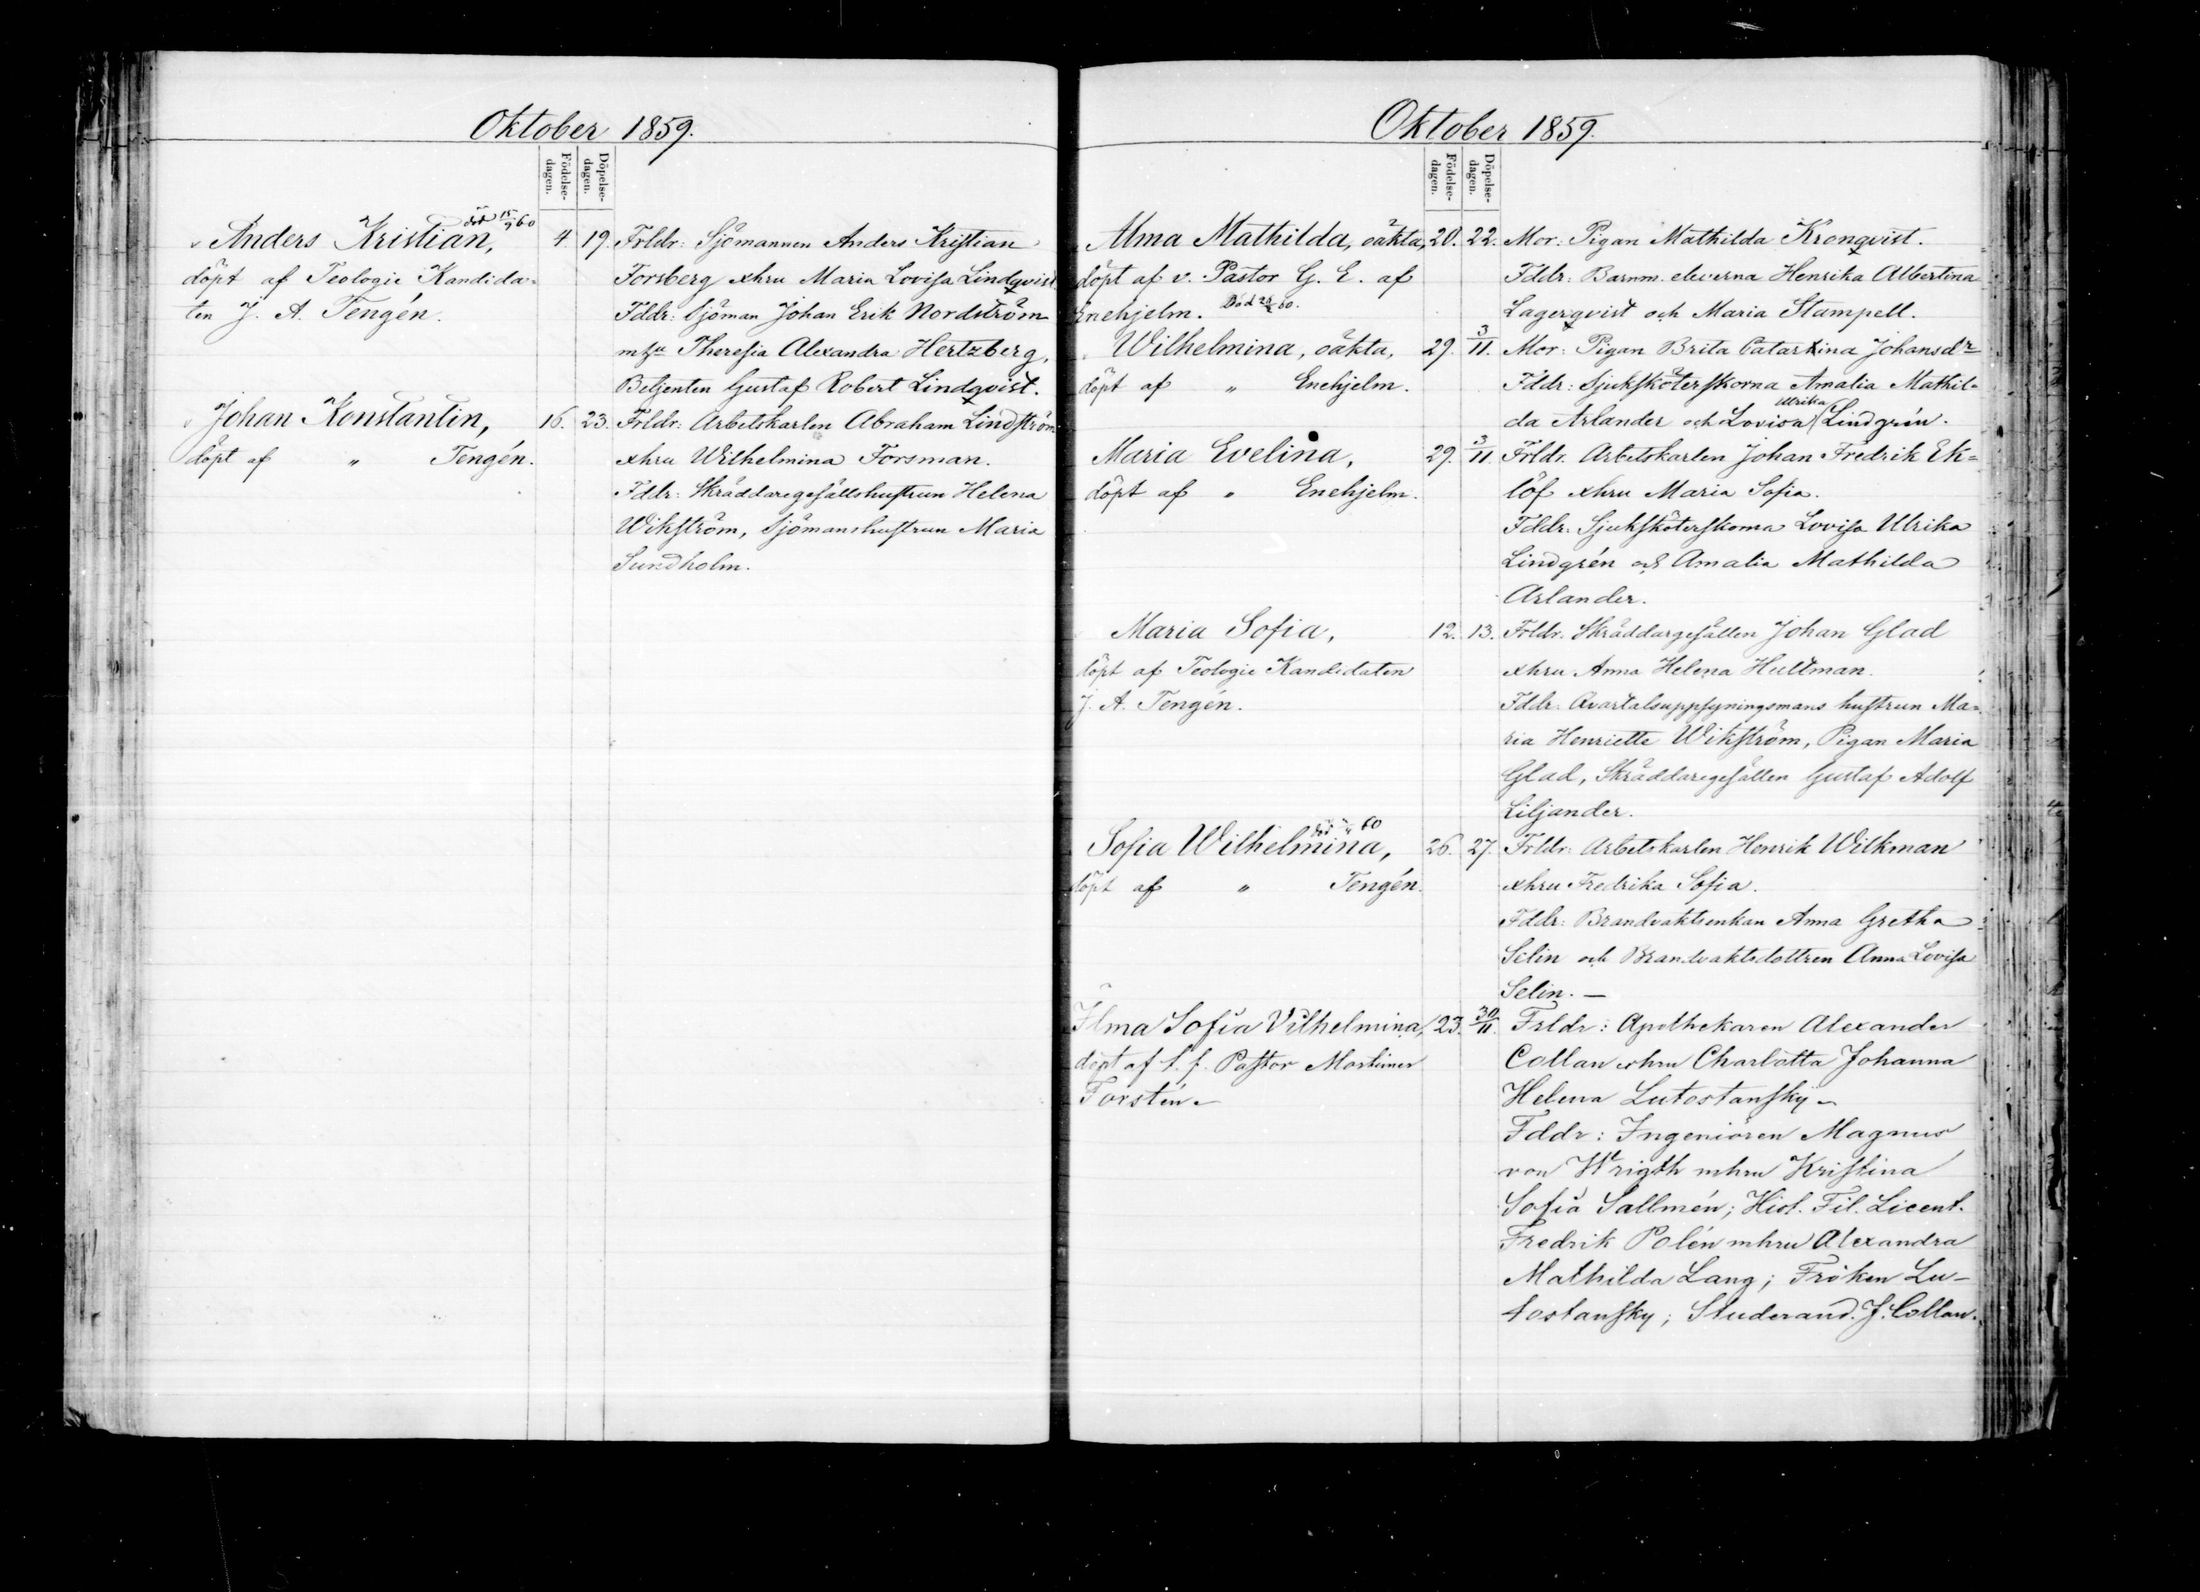 Oktober 1859.
Födelse-dagen.
Döpelse-dagen.
död 15/9 60
Anders Kristian, 4 19. Frldr: Sjömannen Anders Kristian
döpt af Teologie Kandida- Forsberg xhru Maria Lovisa Lindqvist
ten J. A. Tengén. Fddr: Sjöman Johan Erik Nordström
mhu Theresia Alexandra Hertzberg,
Betjenten Gustaf Robert Lindqvist.
Johan Konstantin, 16. 23. Frldr: Arbetskarlen Abraham Lindström
döpt af " Tengén. xhru Wilhelmina Forsman.
Fddr: Skräddaregesällshustrun Helena
Wikström, Sjömanshustrun Maria
Sundholm.
Oktober 1859.
Födelse-dagen.
Döpelse-dagen.
Alma Mathilda, oäkta, 20. 22. Mor: Pigan Mathilda Kronqvist.
döpt af v. Pastor G. E. af Fddr: Barnm. eleverna Henrika Albertina
Enehjelm. Död 60. Lagerqvist och Maria Stampell.
Wilhelmina, oäkta, 29. 3/11. Mor: Pigan Brita Catarina Johansdr
döpt af " Enehjelm. Fddr: Sjuksköterskorna Amalia Mathil-
da Arlander och Lovisa Ulrika Lindgrén.
Maria Evelina, 29. 3/11. Frldr. Arbetskarlen Johan Fredrik Ek-
döpt af " Enehjelm. löf xhru Maria Sofia.
Fddr: Sjuksköterskorna Lovisa Ulrika
Lindgrén och Amalia Mathilda
Arlander.
Maria Sofia, 12. 13. Frldr. Skräddargesällen Johan Glad
döpt af Teologie Kandidaten xhru Anna Helena Hultman.
J. A. Tengén. Fddr: Qvartalsuppsyningsmans hustrun Ma-
ria Henriette Wikström, Pigan Maria
Glad, Skräddaregesällen Gustaf Adolf
Liljander.
död 60
Sofia Wilhelmina, 26. 27. Frldr: Arbetskarlen Henrik Wilkman
döpt af " Tengén. xhru Fredrika Sofia.
Fddr: Brandvaktsenkan Anna Gretha
Selin och Brandvaktsdottren Anna Lovisa
Selin. —
Ilma Sofia Vilhelmina, 23. 30/11. Frldr: Apothekaren Alexander
döpt af t. f. Pastor Mortimer Collan xhru Charlotta Johanna
Forstén. Helena Lutostansky
Fddr: Ingeniören Magnus
von Wrigth mhru Kristina
Sofia Sallmén; Hist. Fil. Licent.
Fredrik Polén mhru Alexandra
Mathilda Lang; Fröken Lu-
tostansky; Studerand. J. Collan.